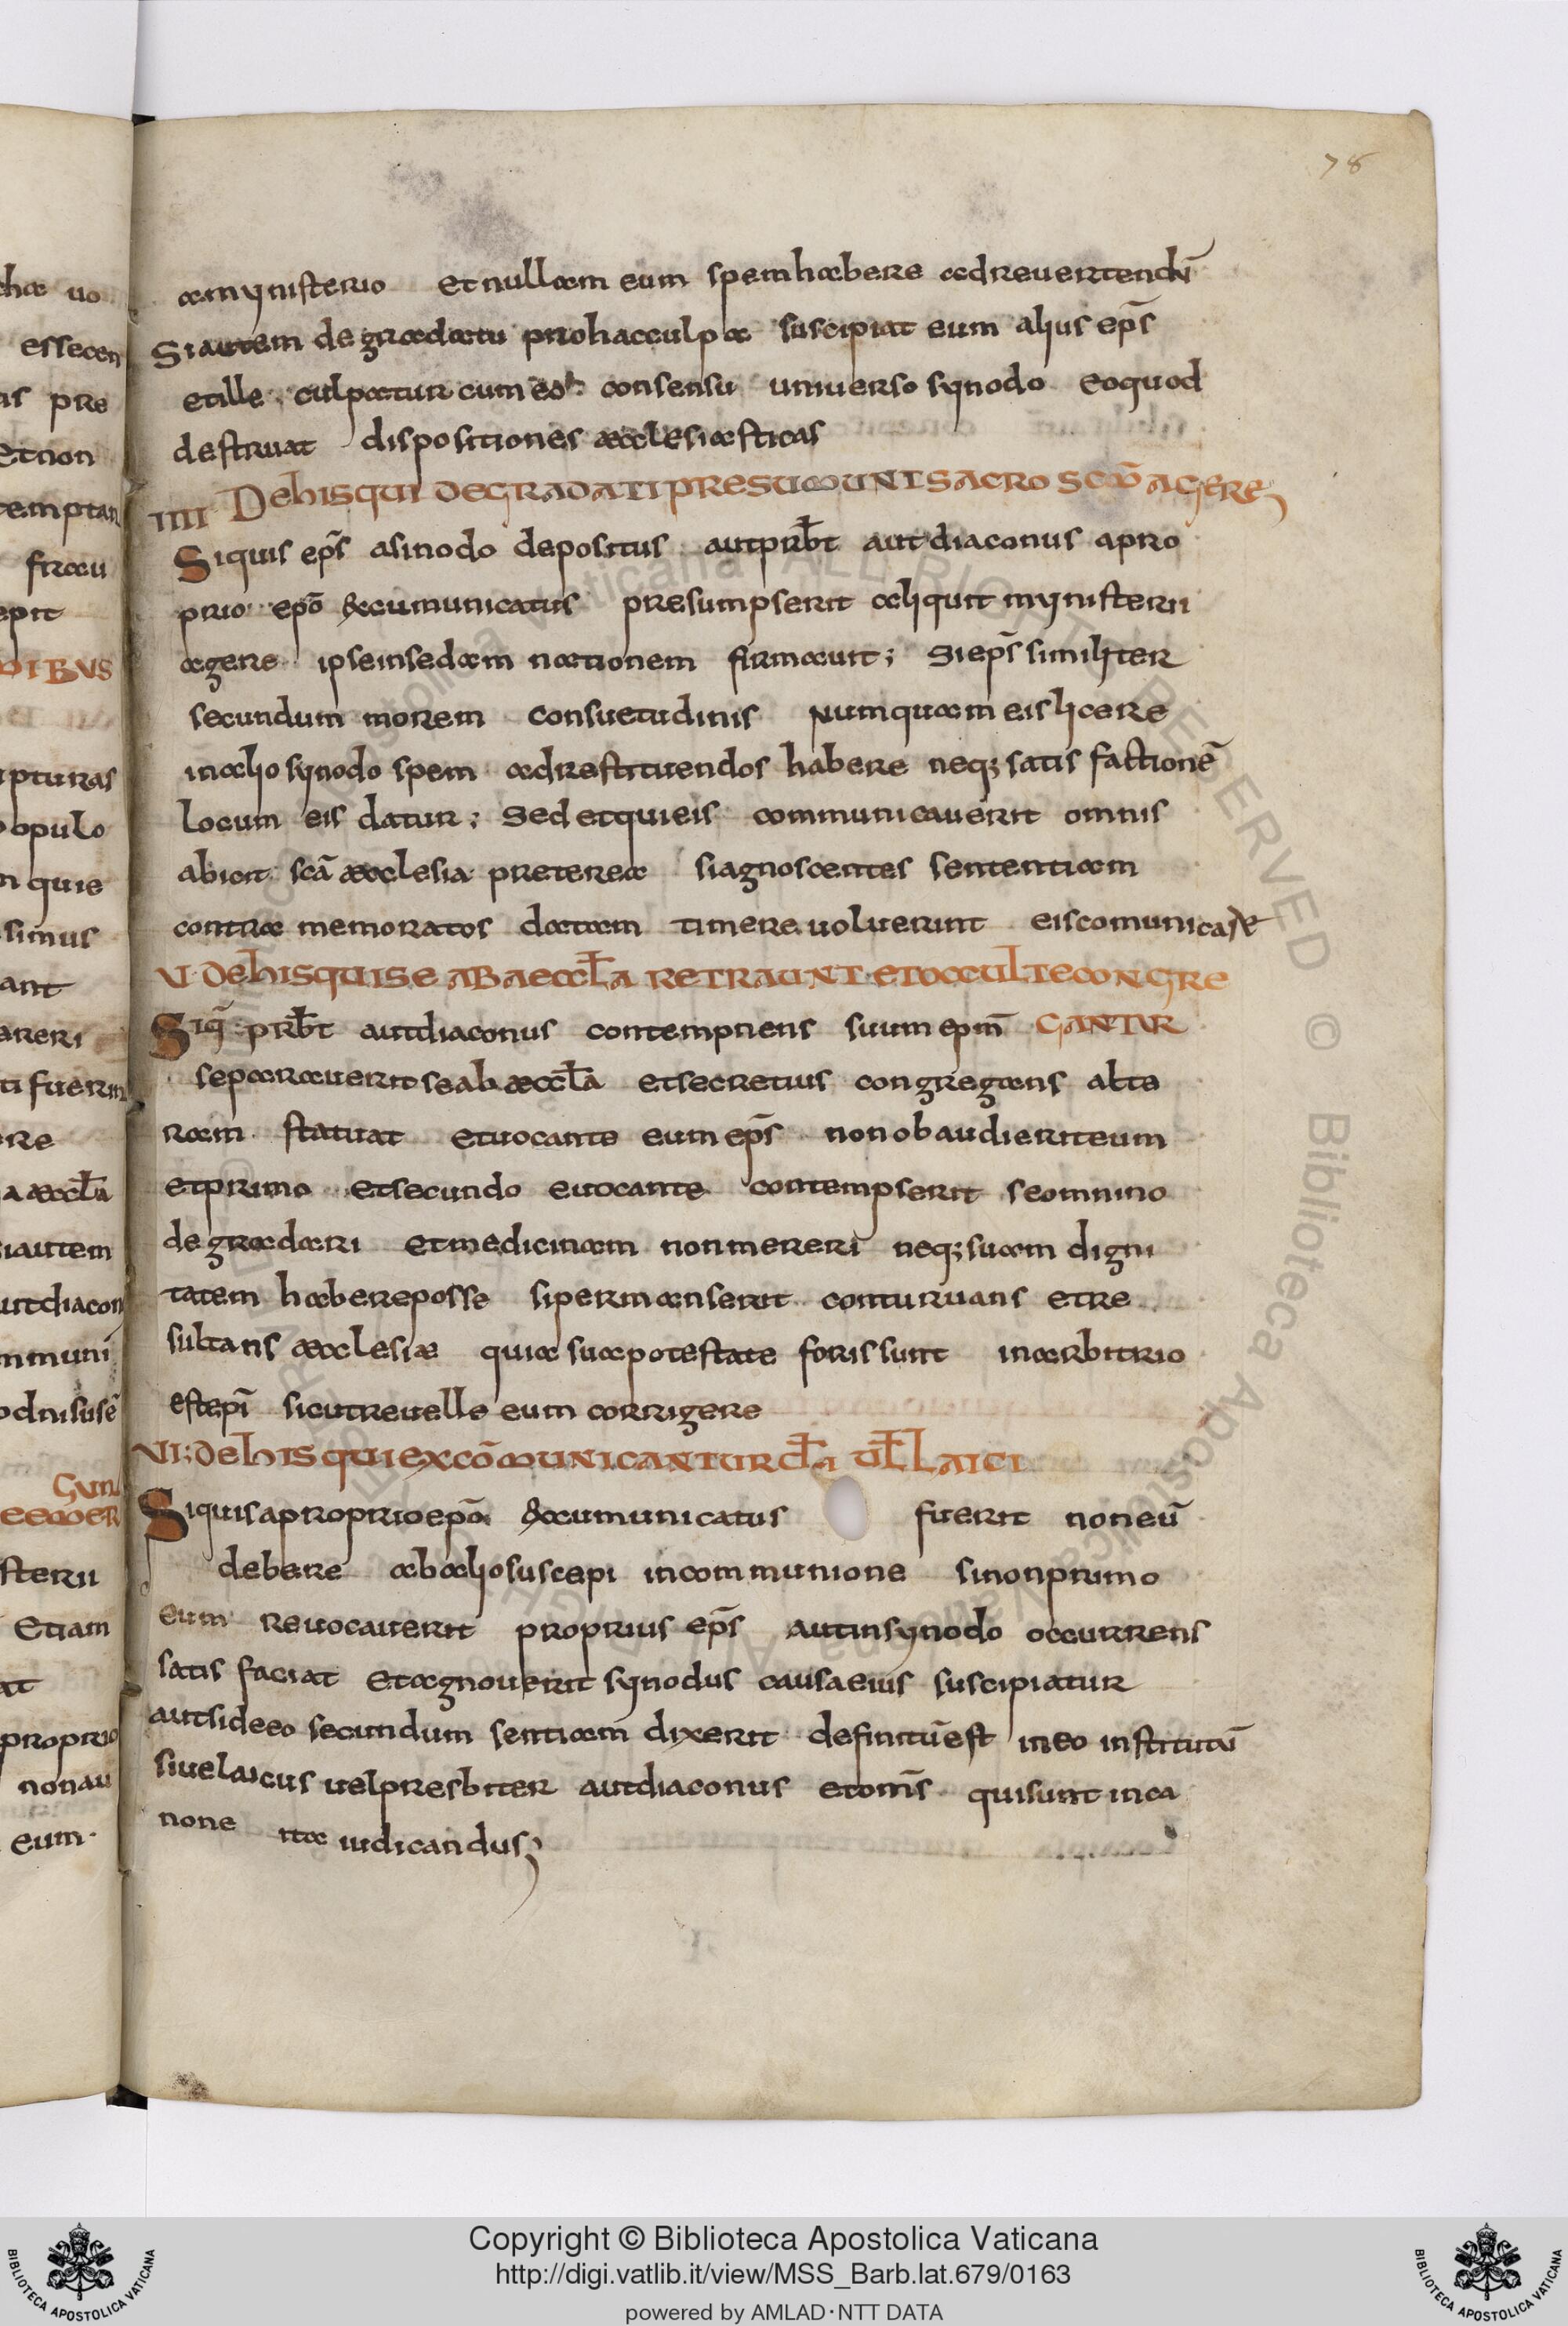 78
amynisterio et nullam eum spem habere ad reuertendū
Si autem degradatu pro hac culpa suscipiat eum alius ep̄s
et ille culpatur cum eo consensu uniuerso synodo eo quod
destruat dispositiones æcclesiasticas
IIII De his qui degradati presumunt sacro scm̄ agere
Siquis ep̄s a sinodo depositus aut prb̄t aut diaconus a pro
prio epō excumunicatus presumpserit aliquit mynisterii
agere ipse in se damnationem firmauit; Si ep̄s similiter
secundum morem consuetudinis numquam eis licere
in alio synodo spem ad restituendos habere neq; satis factionē
locum eis datur; Sed et qui eis communicauerit omnis
abicit scā æcclesia preterea si agnoscentes sententiam
contra memoratos datam timere uoluerint eis comunicare
V. De his qui se ab aeccl̄a retraunt et occulte congre
Siq̄ prb̄t aut diaconus contempnens suum epm̄ gantur
separauerit se ab æccl̄a et secretius congregans alta
ram statuat et uocante eum ep̄s non obaudierit eum
et primo et secundo euocante contempserit se omnino
degradari et medicinam non mereri neq; suam digni
tatem habere posse si permanserit conturuans et re
sultans æcclesiæ quia sua potestate foris sunt in arbitrio
est epī sicut reuelle eum corrigere
VI; De his qui excōmunicantur cl̄a ul̄ laici
Siquis a proprio epō excumunicatus fuerit non eū
debere ab alio suscepi in communione si non primo
eum reuocauerit proprius ep̄s aut in synodo occurrens
satis faciat et agnouerit synodus causa eius suscipiatur
aut si de eo secundum sentiam dixerit definitū est in eo institutū
siue laicus uel presbiter aut diaconus et omn̄s qui sunt in ca
none ita iudicandus;
Copyright © Biblioteca Apostolica Vaticana
http://digi.vatlib.it/view/MSS_Barb.lat.679/0163
powered by AMLAD·NTT DATA
BIBLIOTECA APOSTOLICA VATICANA
BIBLIOTECA APOSTOLICA VATICANA